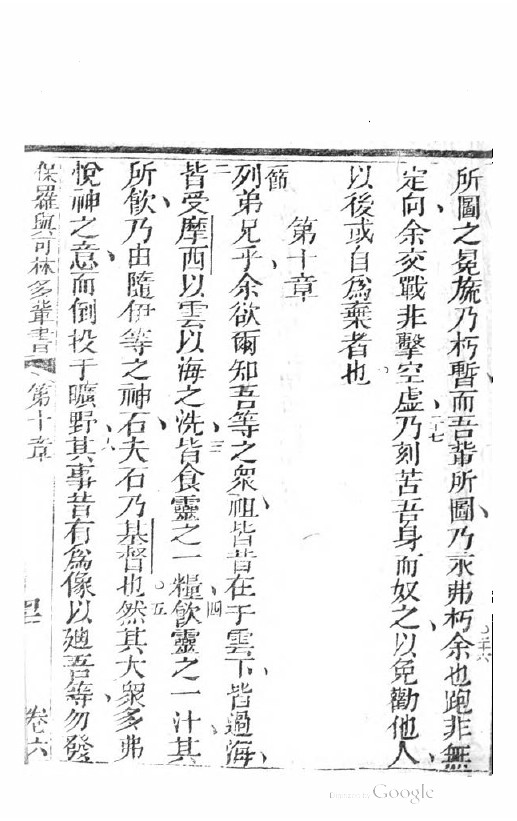 所圖之冕旒乃朽暫而吾輩所圖乃永弗朽余也跑非無
二六
定向余交戰非擊空虛乃刻苦吾身而奴之以免勸他人
二七
以後或自爲棄者也
第十章
節
列弟兄乎余欲爾知吾等之衆祖皆昔在于雲下皆過海
二
皆受摩西以雲以海之洗皆食靈之一糧飲靈之一汁其
三
四
所飲乃由隨伊等之神石夫石乃基督也然其大衆多弗
五
悅神之意而倒投于曠野其事昔有爲像以廸吾等勿發
六
保羅與可林多輩書
第十章
四
卷六
Digitized by Google